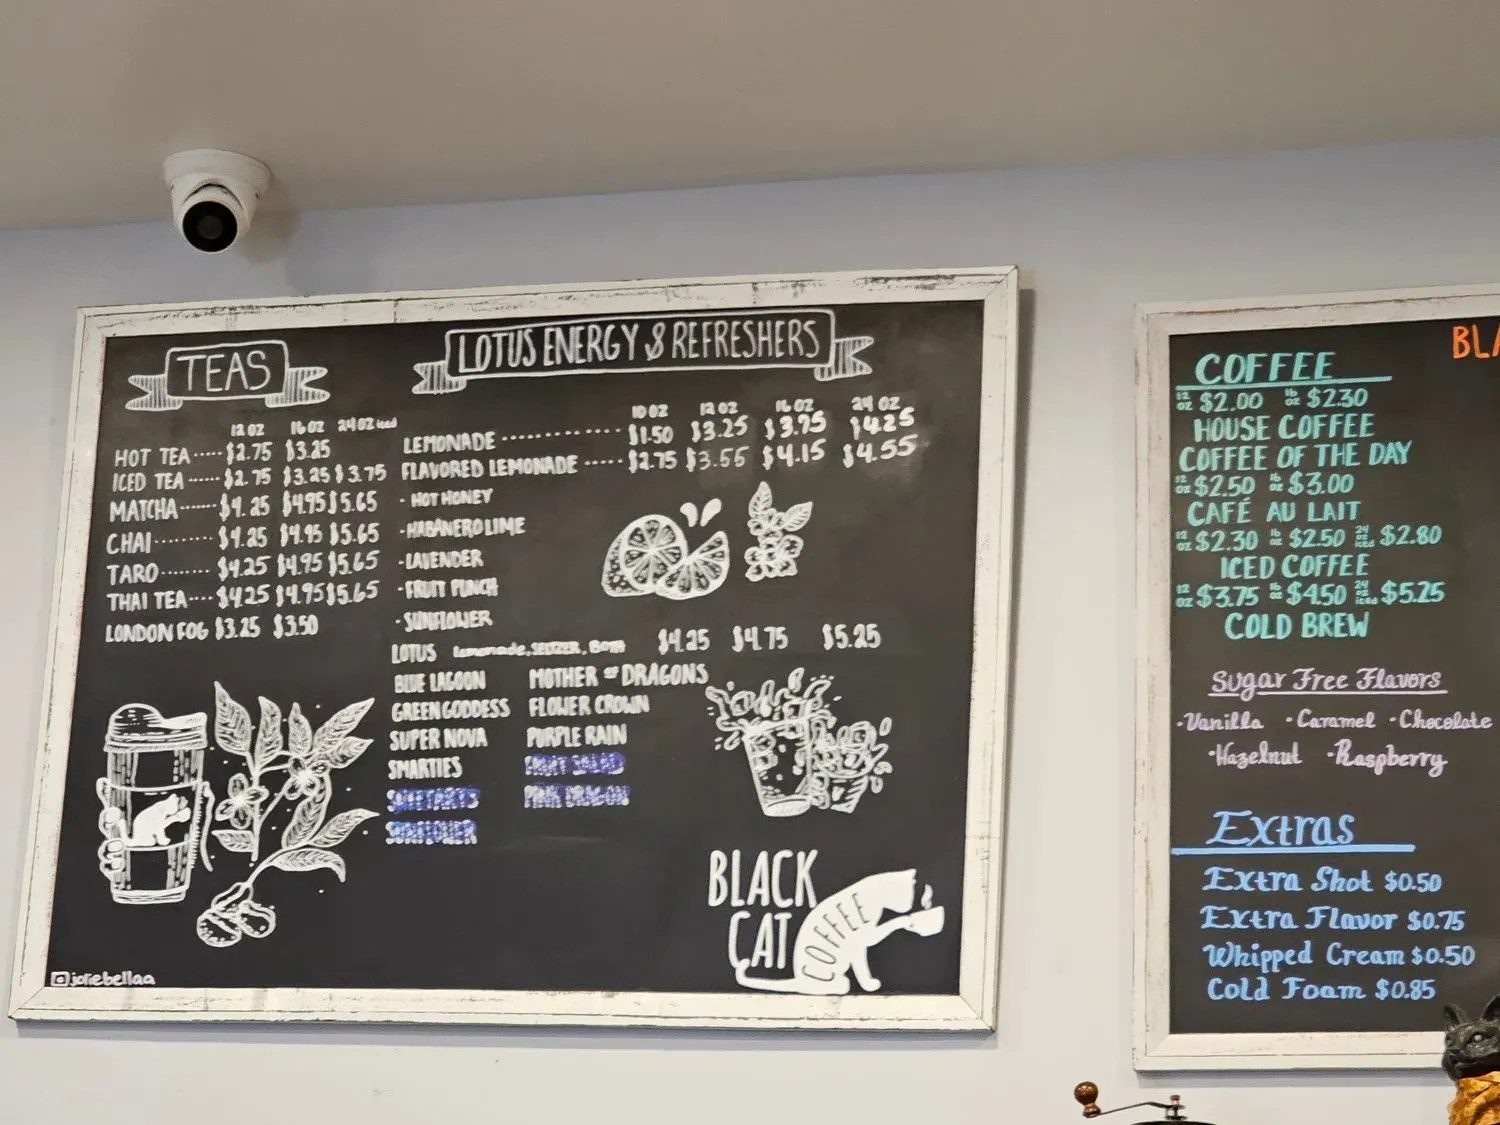 TEAS
12 OZ 16 OZ 24 OZ iced
HOT TEA ····· $2.75 $3.25
ICED TEA ······ $2.75 $3.25 $3.75
MATCHA ······· $4.25 $4.95 $5.65
CHAI ········ $4.25 $4.95 $5.65
TARO ········ $4.25 $4.95 $5.65
THAI TEA ···· $4.25 $4.95 $5.65
LONDON FOG $3.25 $3.50
@joriebellaa
LOTUS ENERGY & REFRESHERS
10 OZ 12 OZ 16 OZ 24 OZ
LEMONADE ············· $1.50 $3.25 $3.75 $4.25
FLAVORED LEMONADE ····· $2.75 $3.55 $4.15 $4.55
· HOT HONEY
· HABANERO LIME
· LAVENDER
· FRUIT PUNCH
· SUNFLOWER
LOTUS lemonade, SELTZER, BOTH $4.25 $4.75 $5.25
BLUE LAGOON MOTHER OF DRAGONS
GREEN GODDESS FLOWER CROWN
SUPER NOVA PURPLE RAIN
SMARTIES FRUIT SALAD
SWEETARTS PINK DRAGON
SUNFLOWER
BLACK
CAT
COFFEE
BLA
COFFEE
12 OZ $2.00 16 OZ $2.30
HOUSE COFFEE
COFFEE OF THE DAY
12 OZ $2.50 16 OZ $3.00
CAFÉ AU LAIT
12 OZ $2.30 16 OZ $2.50 24 OZ iced $2.80
ICED COFFEE
12 OZ $3.75 16 OZ $4.50 24 OZ iced $5.25
COLD BREW
Sugar Free Flavors
·Vanilla ·Caramel ·Chocolate
·Hazelnut ·Raspberry
Extras
Extra Shot $0.50
Extra Flavor $0.75
Whipped Cream $0.50
Cold Foam $0.85